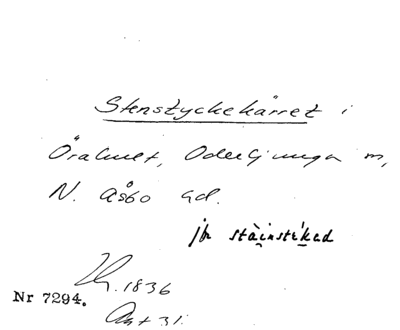 Stenstyckekärret i
Örahult, Oderljunga m,
N. Åsbo hd.
jfr stàinstikad
1836
Nr 7294.
Akt 31.